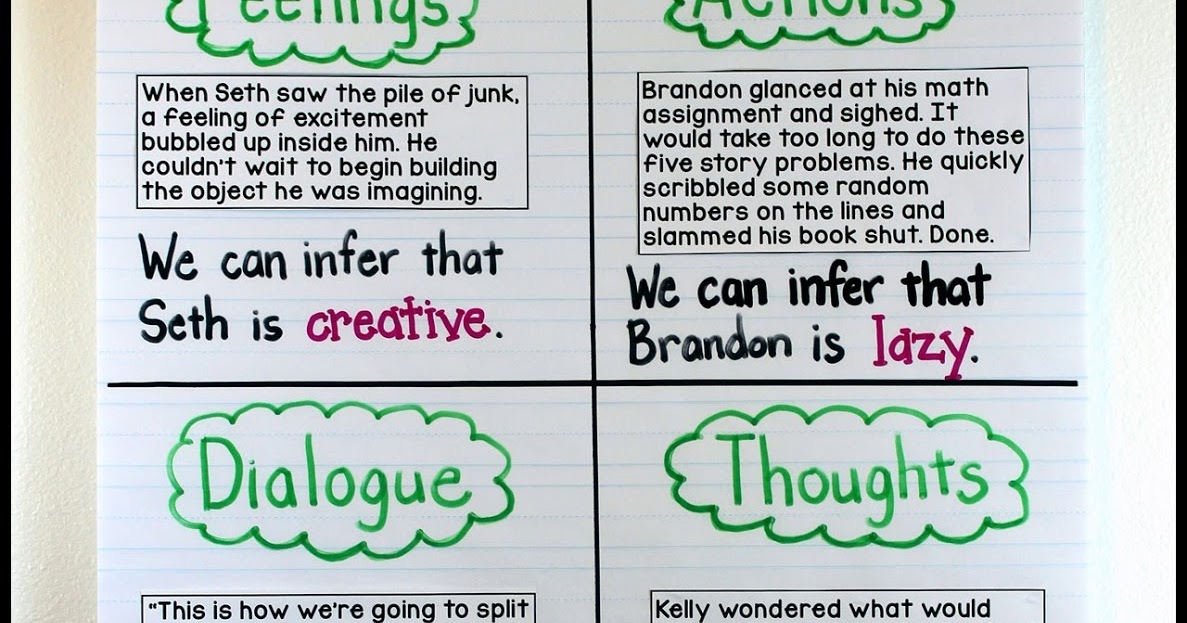 Feelings
When Seth saw the pile of junk,
a feeling of excitement
bubbled up inside him. He
couldn't wait to begin building
the object he was imagining.
We can infer that
Seth is creative.
Actions
Brandon glanced at his math
assignment and sighed. It
would take too long to do these
five story problems. He quickly
scribbled some random
numbers on the lines and
slammed his book shut. Done.
We can infer that
Brandon is lazy.
Dialogue
"This is how we're going to split
Thoughts
Kelly wondered what would